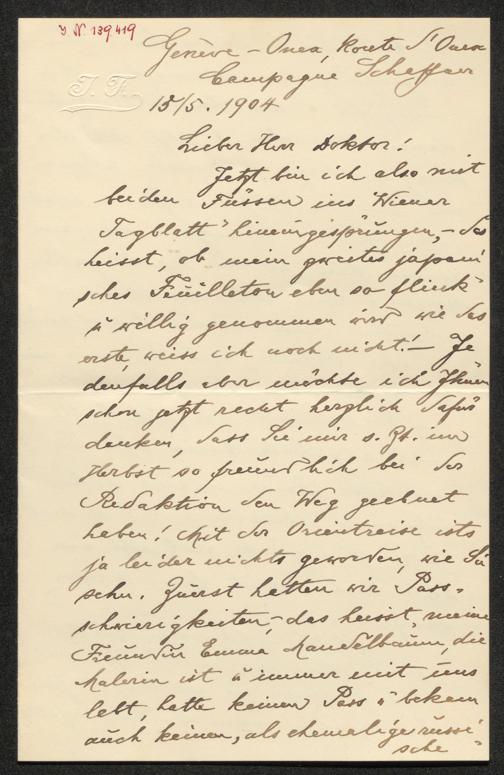 J. N. 139419
J. F.
Genève – Onex, Route d'Onex
Campagne Scheffner
15/5. 1904
Lieber Herr Doktor!
Jetzt bin ich also mit
beiden Füssen ins "Wiener
Tagblatt" hineingesprungen, – das
heisst, ob mein zweites japani
sches Feuilleton eben so flink
u willig genommen wird wie das
erste, weiss ich noch nicht! – Je
denfalls aber möchte ich Ihnen
schon jetzt recht herzlich dafür
danken, dass Sie mir s. Zt. im
Herbst so freundlich bei der
Redaktion den Weg geebnet
haben! Mit der Orientreise ists
ja leider nichts geworden, wie Sie
sehn. Zuerst hatten wir Pass-
schwierigkeiten, – das heisst, meine
Freundin Emma Mandelbaum, die
Malerin ist u immer mit uns
lebt, hatte keinen Pass u bekam
auch keinen, als ehemalige russi-
sche